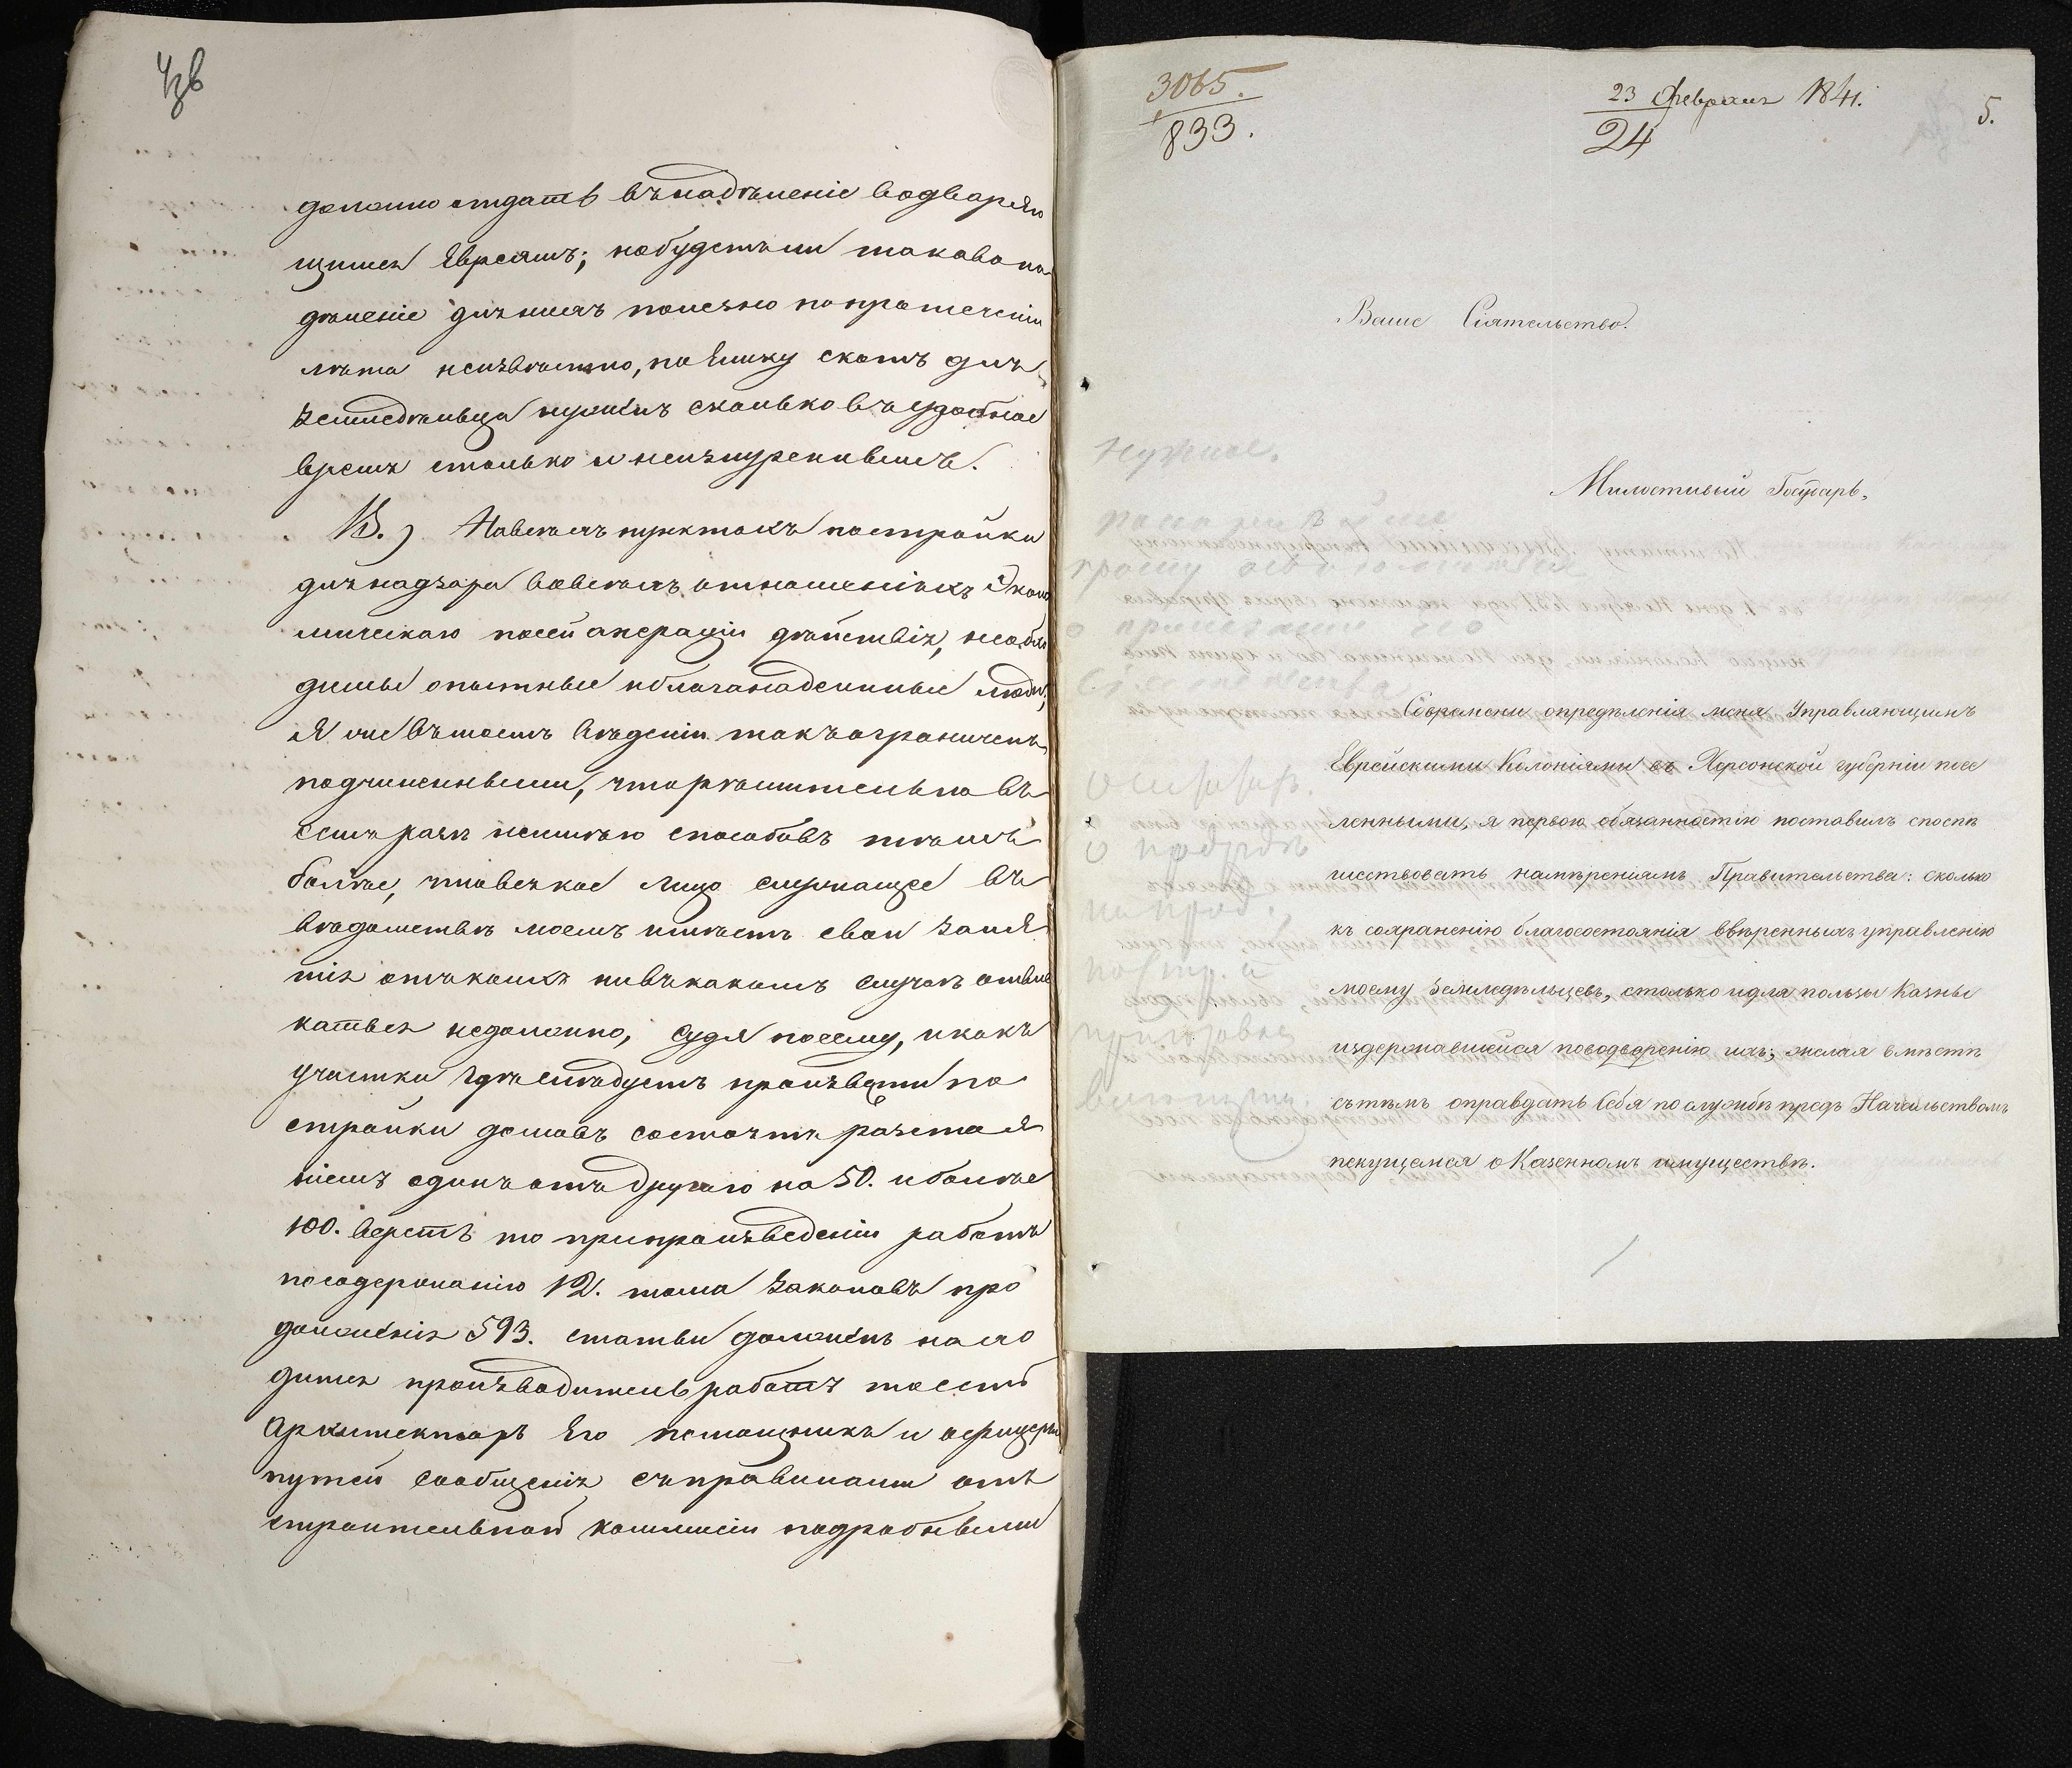 4об
должно отдать въ надѣленіе водваряю
щимся Евреямъ; но будетъ ли таковое на
дѣленіе для нихъ полезно по протеченіи
лѣта неизвѣстно, по Елику скотъ для
земледѣльца нуженъ сколько въ удобное
время столько и неизнуренный.
В.) На всѣхъ пунктахъ постройки
для надзора во всѣхъ отношеніяхъ Эконо
мическаго по сей операціи дѣйствія, необхо
димы опытные и благонадежные люди,
Я же въ моемъ вѣденіи такъ ограниченъ
подчиненными, что рѣшительно въ
семъ разѣ неимѣю способовъ тѣмъ
болѣе, что всякое лицо служащее въ
вѣдомствѣ моемъ имѣетъ свои заня
тія отъ коихъ ни въ какомъ случаѣ отвле
каться недолжно, Судя по сему, и какъ
участки гдѣ слѣдуетъ произвести по
стройки домовъ состоятъ разстоя
ніемъ одинъ отъ другаго на 50. и болѣе
100. верстъ то при произведеніи работъ
по содержанію 12. тома Законовъ про
долженія 593. статьи долженъ нахо
дится производитель работъ то есть
Архитекторъ Его помощникъ и офицеры
путей сообщенія съ правилами отъ
строительной коммисіи подробными
3065.
833.
23 Февраля 1841.
24
5.
Ваше Сіятельство.
Милостивый Государь,
нужное.
прошу
Современи опредѣленія меня Управляющимъ
Еврейскими Колоніями въ Херсонской губерніи посе
ленными, я первою обязанностію поставилъ споспѣ
шествовать намѣреніямъ Правительства: сколько
къ сохраненію благосостоянія ввѣренныхъ управленію
моему Земледѣльцевъ, столько и для пользы Казны
издержавшейся поводворенію ихъ; желая вмѣстѣ
сътѣмъ оправдать Себя по службѣ предъ Начальствомъ
пекущемся о Казенномъ имуществѣ.